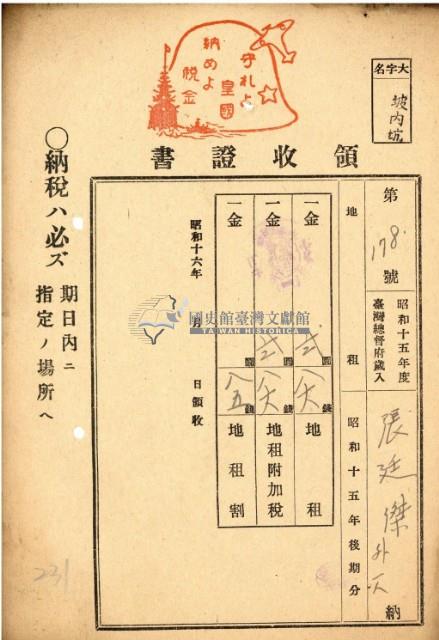 守れよ
皇國
納めよ
税金
大字名
坡内坑
領收證書
第178號
昭和十五年度
臺灣總督府歳入
張廷傑外一人
納
地租
昭和十五年後期分
一金
弐圓
八六錢
地租
一金
弐圓
八六錢
地租附加税
一金
圓
八五錢
地租割
昭和十六年 月 日領收
○納税ハ必ズ
期日内ニ
指定ノ場所ヘ
231
國史館臺灣文獻館
TAIWAN HISTORICA